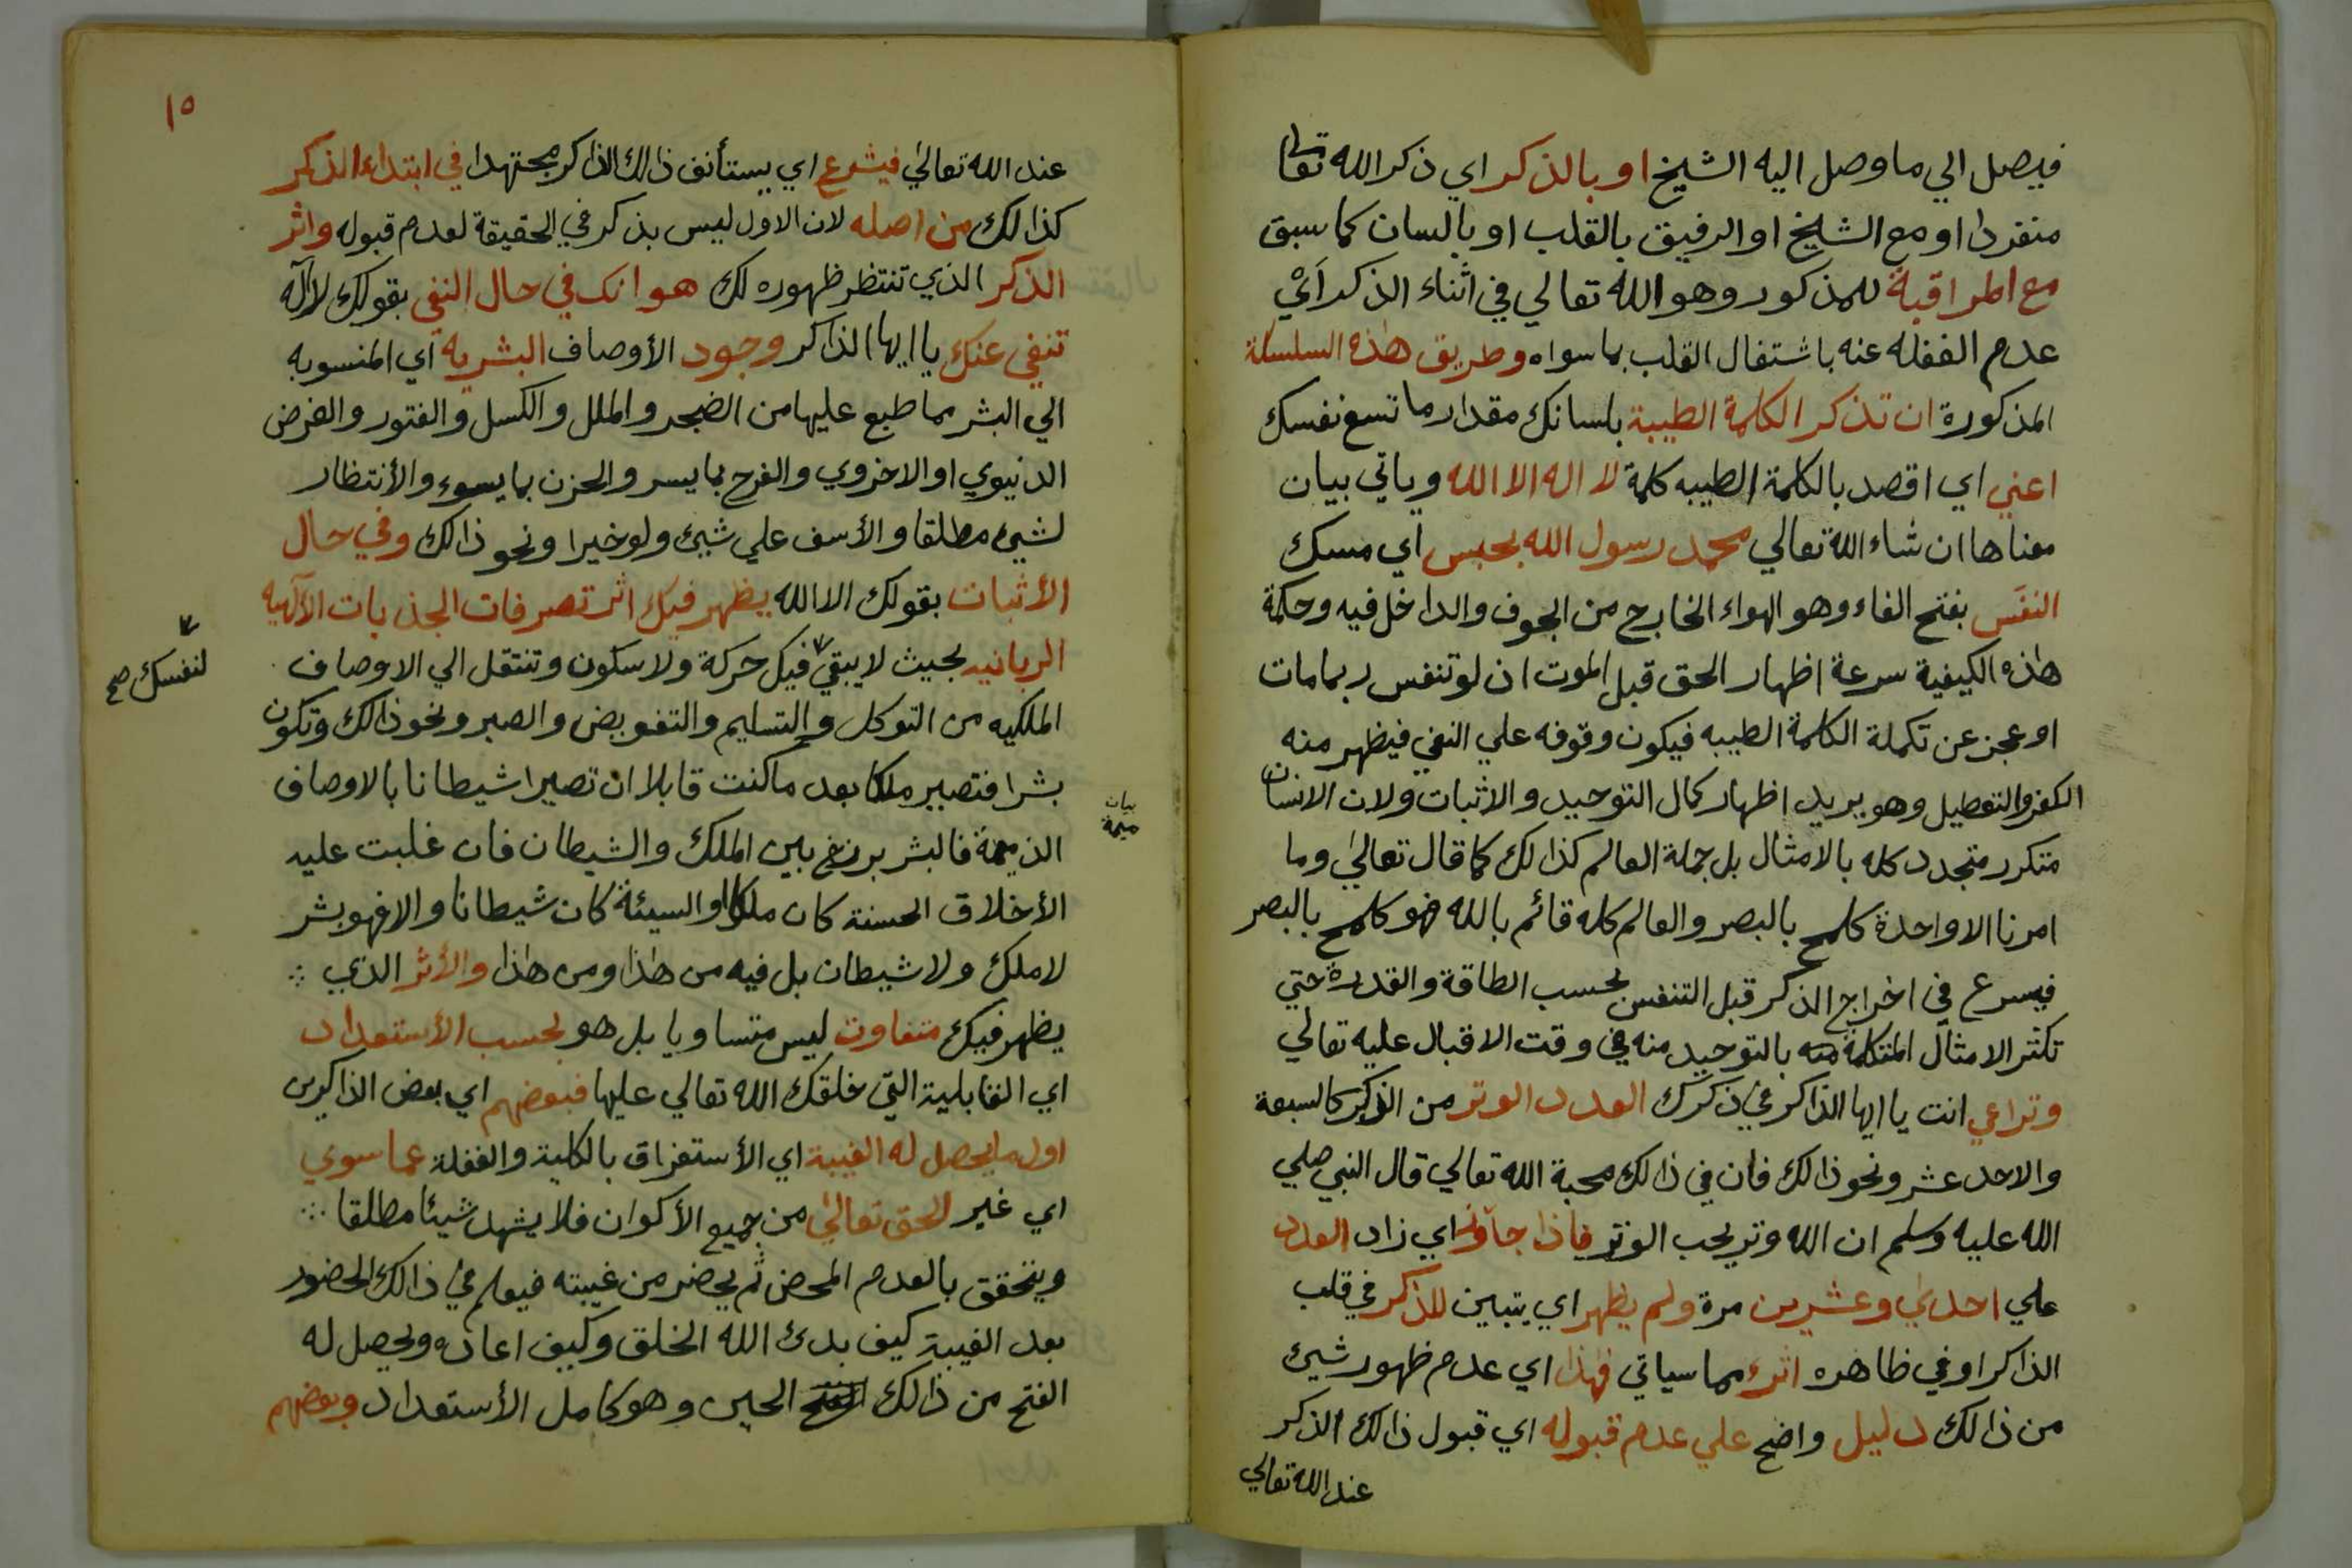 فيصل الي ما وصل اليه الشيخ او بالذكر اي ذكر الله تعالى
منفردا او مع الشيخ او الرفيق بالقلب او بالسان كما سبق
مع المراقبة للمذكور وهو الله تعالي في اثناء الذكر اَيْ
عدم الغفله عنه باشتغال القلب بما سواه وطريق هذه السلسلة
المذكورة ان تذكر الكلمة الطيبة بلسانك مقدار ما تسع نفسك
اعني اي اقصد بالكلمة الطيبه كلمة لا اله الا الله وياتي بيان
معناها ان شاء الله تعالي محمد رسول الله بحبس اي مسك
النفَس بفتح الفاء وهو الهواء الخارج من الجوف والداخل فيه وحكمة
هذه الكيفية سرعة اظهار الحق قبل الموت ان لو تنفس ربمامات
او عجز عن تكملة الكلمة الطيبه فيكون وقوفه علي النفي فيظهر منه
الكفر والتعطيل وهو يريد اظهار كمال التوحيد والاثبات ولان الانسان
متكرر متجدد كله بالامثال بل جملة العالم كذالك كما قال تعالي وما
امرنا الا واحدة كلمح بالبصر والعالم كله قائم بالله فهو كلمح بالبصر
فيسرع في اخراج الذكر قبل التنفس بحسب الطاقة والقدرة حتي
تكثر الامثال المتكلمة منه بالتوحيد منه في وقت الاقبال عليه تعالي
وتراعي انت يا ايها الذاكر في ذكرك العدد الوتر من الذكر كالسبعة
والاحد عشر ونحو ذالك فان في ذالك محبة الله تعالي قال النبي صلي
الله عليه وسلم ان الله وتر يحب الوتر فاذا جاوز اي زاد العدد
علي احدي وعشرين مرة ولم يظهر اي يتبين للذكر في قلب
الذاكر او في ظاهره اثر مما سياتي فهذا اي عدم ظهور شيئ
من ذالك دليل واضح علي عدم قبوله اي قبول ذالك الذكر
عند الله تعالي
١٥
عند الله تعالي فيشرع اي يستأنف ذالك الذاكر مجتهدا في ابتداء الذكر
كذالك من اصله لان الاول ليس بذكر في الحقيقة لعدم قبوله واثر
الذكر الذي تنتظر ظهوره لك هو انك في حال النفي بقولك لا آله
تنفي عنك يا ايها الذاكر وجود الأوصاف البشريه اي المنسوبه
الي البشر مما طبع عليها من الضجر والملل والكسل والفتور والغرض
الدنيوي او الاخروي والفرح بما يسر والحزن بما يسوء والأنتظار
لشيئ مطلقا والأسف علي شيئ ولو خيرا ونحو ذالك وفي حال
الأثبات بقولك الا الله يظهر فيك اثر تصرفات الجذبات الآلهيه
الربانيه بحيث لا يبقي فيك حركة ولا سكون وتنتقل الي الاوصاف
لنفسك صح
الملكيه من التوكل والتسليم والتفويض والصبر ونحو ذالك وتكون
بشرا فتصير ملكا بعد ما كنت قابلا ان تصيرا شيطانا بالاوصاف
الذميمة فالبشر برزخ بين الملك والشيطان فان غلبت عليه
بيان
ميمة
الأخلاق الحسنة كان ملكا او السيئة كان شيطانا والا فهو بشر
لا ملك ولا شيطان بل فيه من هذا ومن هذا والأثر الذي
يظهر فيك متفاوت ليس متساويا بل هو بحسب الأستعداد
اي القابلية التي خلقك الله تعالي عليها فبعضهم اي بعض الذاكرين
اول ما يحصل له الغيبة اي الأستغراق بالكلية والغفلة عما سوي
اي غير الحق تعالي من جميع الأكوان فلا يشهد شيئا مطلقا
ويتحقق بالعدم المحض ثم يحضر من غيبته فيعلم في ذالك الحضور
بعد الغيبة كيف بدئ الله الخلق وكيف اعاده ويحصل له
الفتح من ذالك الحين وهو كامل الأستعداد وبعضهم